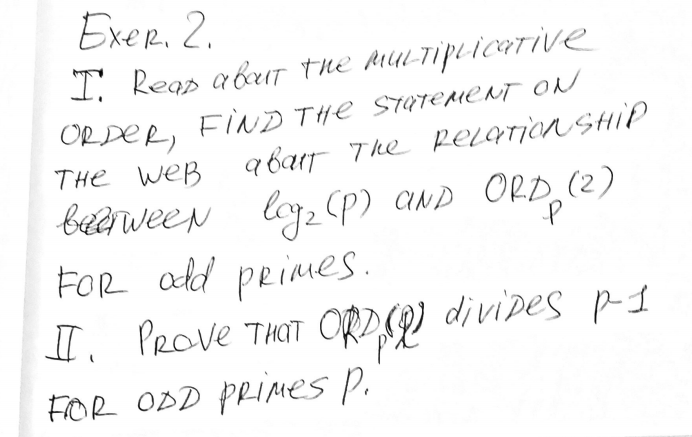 Exer. 2.
I. Read about the multiplicative
order, find the statement on
the web about the relationship
between log₂(p) and ORDₚ(2)
for odd primes.
II. Prove that ORDₚ(2) divides p-1
for odd primes p.